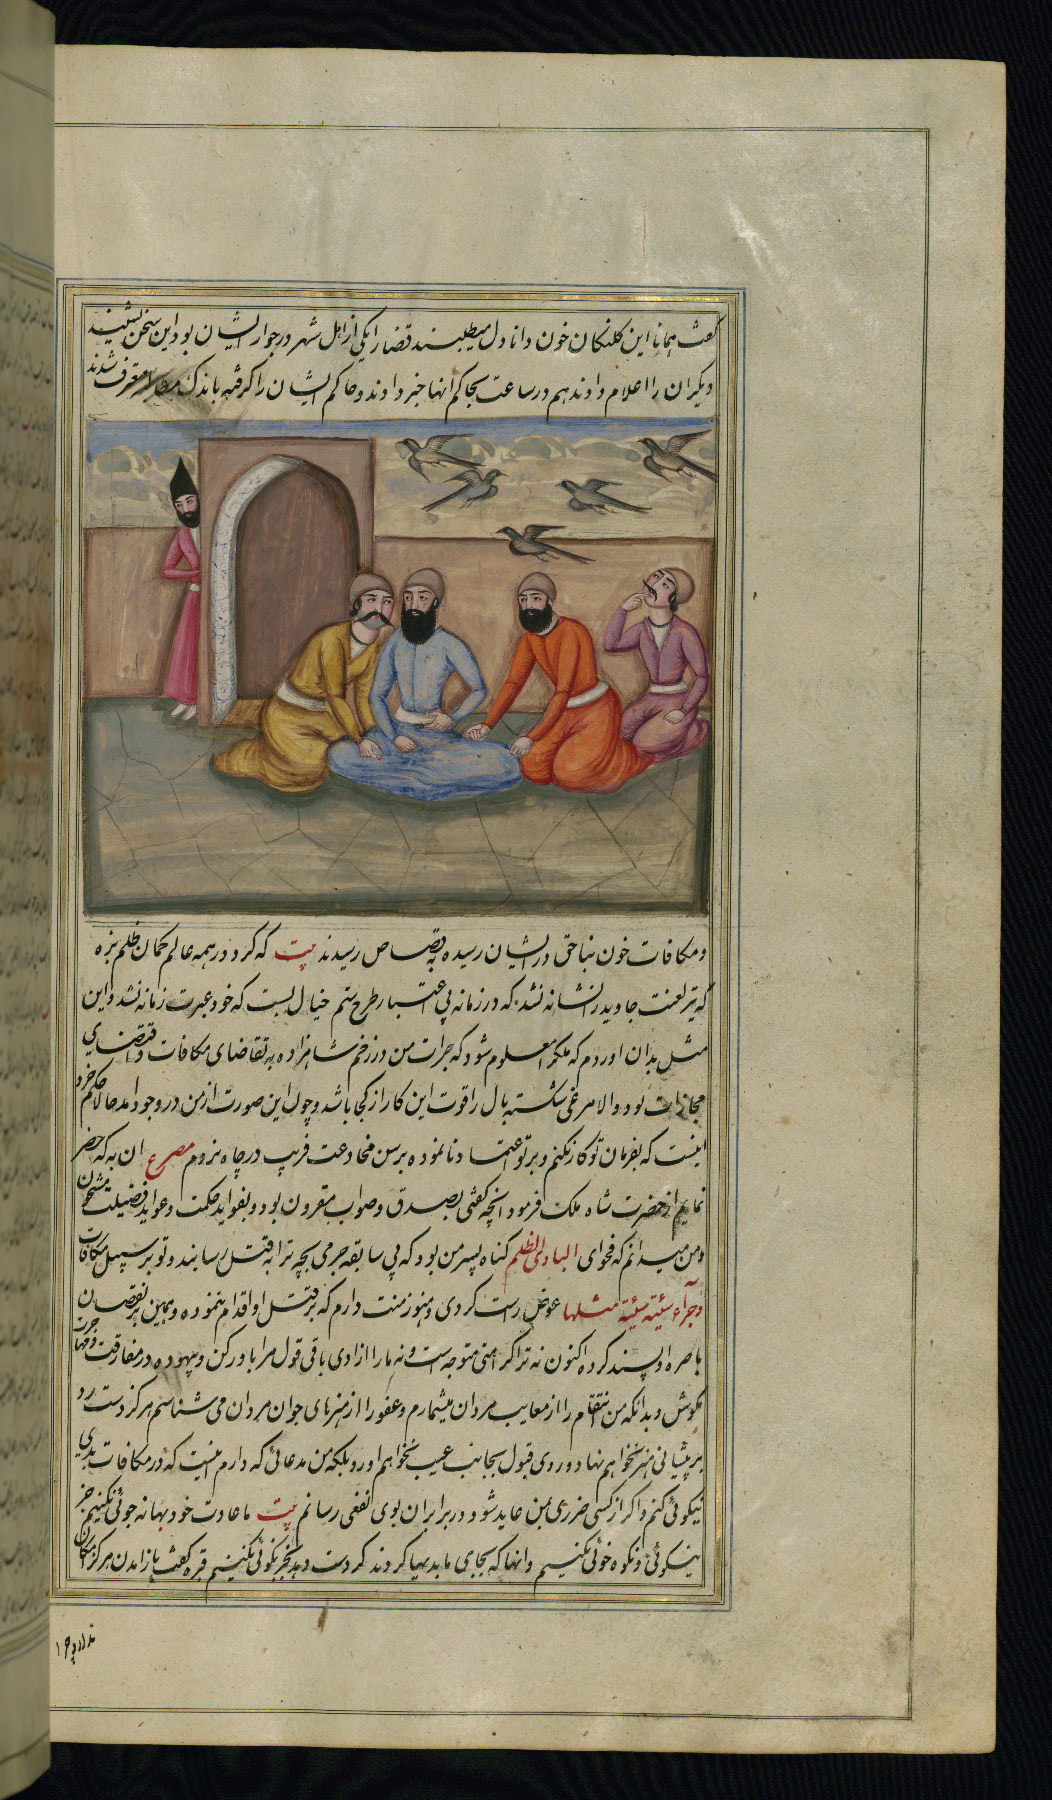 گفت همانا این کلنگان خون دانادل میطلبند قضارا یکی از اهل شهر در جوار ایشان بود این سخن بشنید
دیگران را اعلام دادند هم در ساعت بحاکم انها خبر دادند و حاکم ایشان را گرفته باندک معترف شدند
و مکافات خون بناحق در ایشان رسیده بقصاص رسیدند بیت که کرد در همه عالم کمان ظلم بزه
که تیر لعنت جاوید را نشانه نشد که در زمانه بی اعتبار طرح ستم خیال بست که خود عبرت زمانه نشد و این
مثل بدان اوردم که ملک را معلوم شود که جرات من در زخم شاهزاده به تقاضای مکافات و اقتضای
مجازات بود والا مرغی شکسته بال را قوت این کار از کجا باشد و چون این صورت از من در وجود امد حالا حکم خرد
اینست که بفرمان تو کار نکنم و بر تو اعتماد نا نموده برسن مخادعت فریب در چاه نروم مصرع ان به که حذر
نمایم از حضرت شاه ملک فرمود انچه گفتی بصدق و صواب مقرون بود و بفواید حکمت و عواید فضیلت مشحون
و من میدانم که فحوای البادی اظلم گناه پسر من بود که بی سابقه جرمی بچه ترا بقتل رسانید و تو بر سبیل مکافات
و جزاء سیئة سیئة مثلها عوض راست کردی و هنوز منت دارم که بر قتل او اقدام ننموده و همین بر نقصان
باصره او پسند کرده اکنون نه ترا کراهتی متوجه است و نه ما را ازادی باقی قول مرا باور کن و بیهوده در مفارقت و مهاجرت
مکوش و بدانکه من انتقام را از معایب مردان میشمارم و عفو را از هنرهای جوان مردان می شناسم هرگز دست رد
بر پیشانی هنر نخواهم نهاد و روی قبول بجانب عیب نخواهم اورد بلکه من مدعائی که دارم اینست که در مکافات بدی
نیکوئی کنم و اگر از کسی ضرری بمن عاید شود در برابر ان بوی نفعی رسانم بیت ما عادت خود بهانه جوئی نکنیم جز
نیکوئی و نکوه خوئی نکنیم وانها که بجای ما بدیها کردند گر دست دهد بجز نکوئی نکنیم قبره گفت باز امدن هرگز امکان
ندارد چه